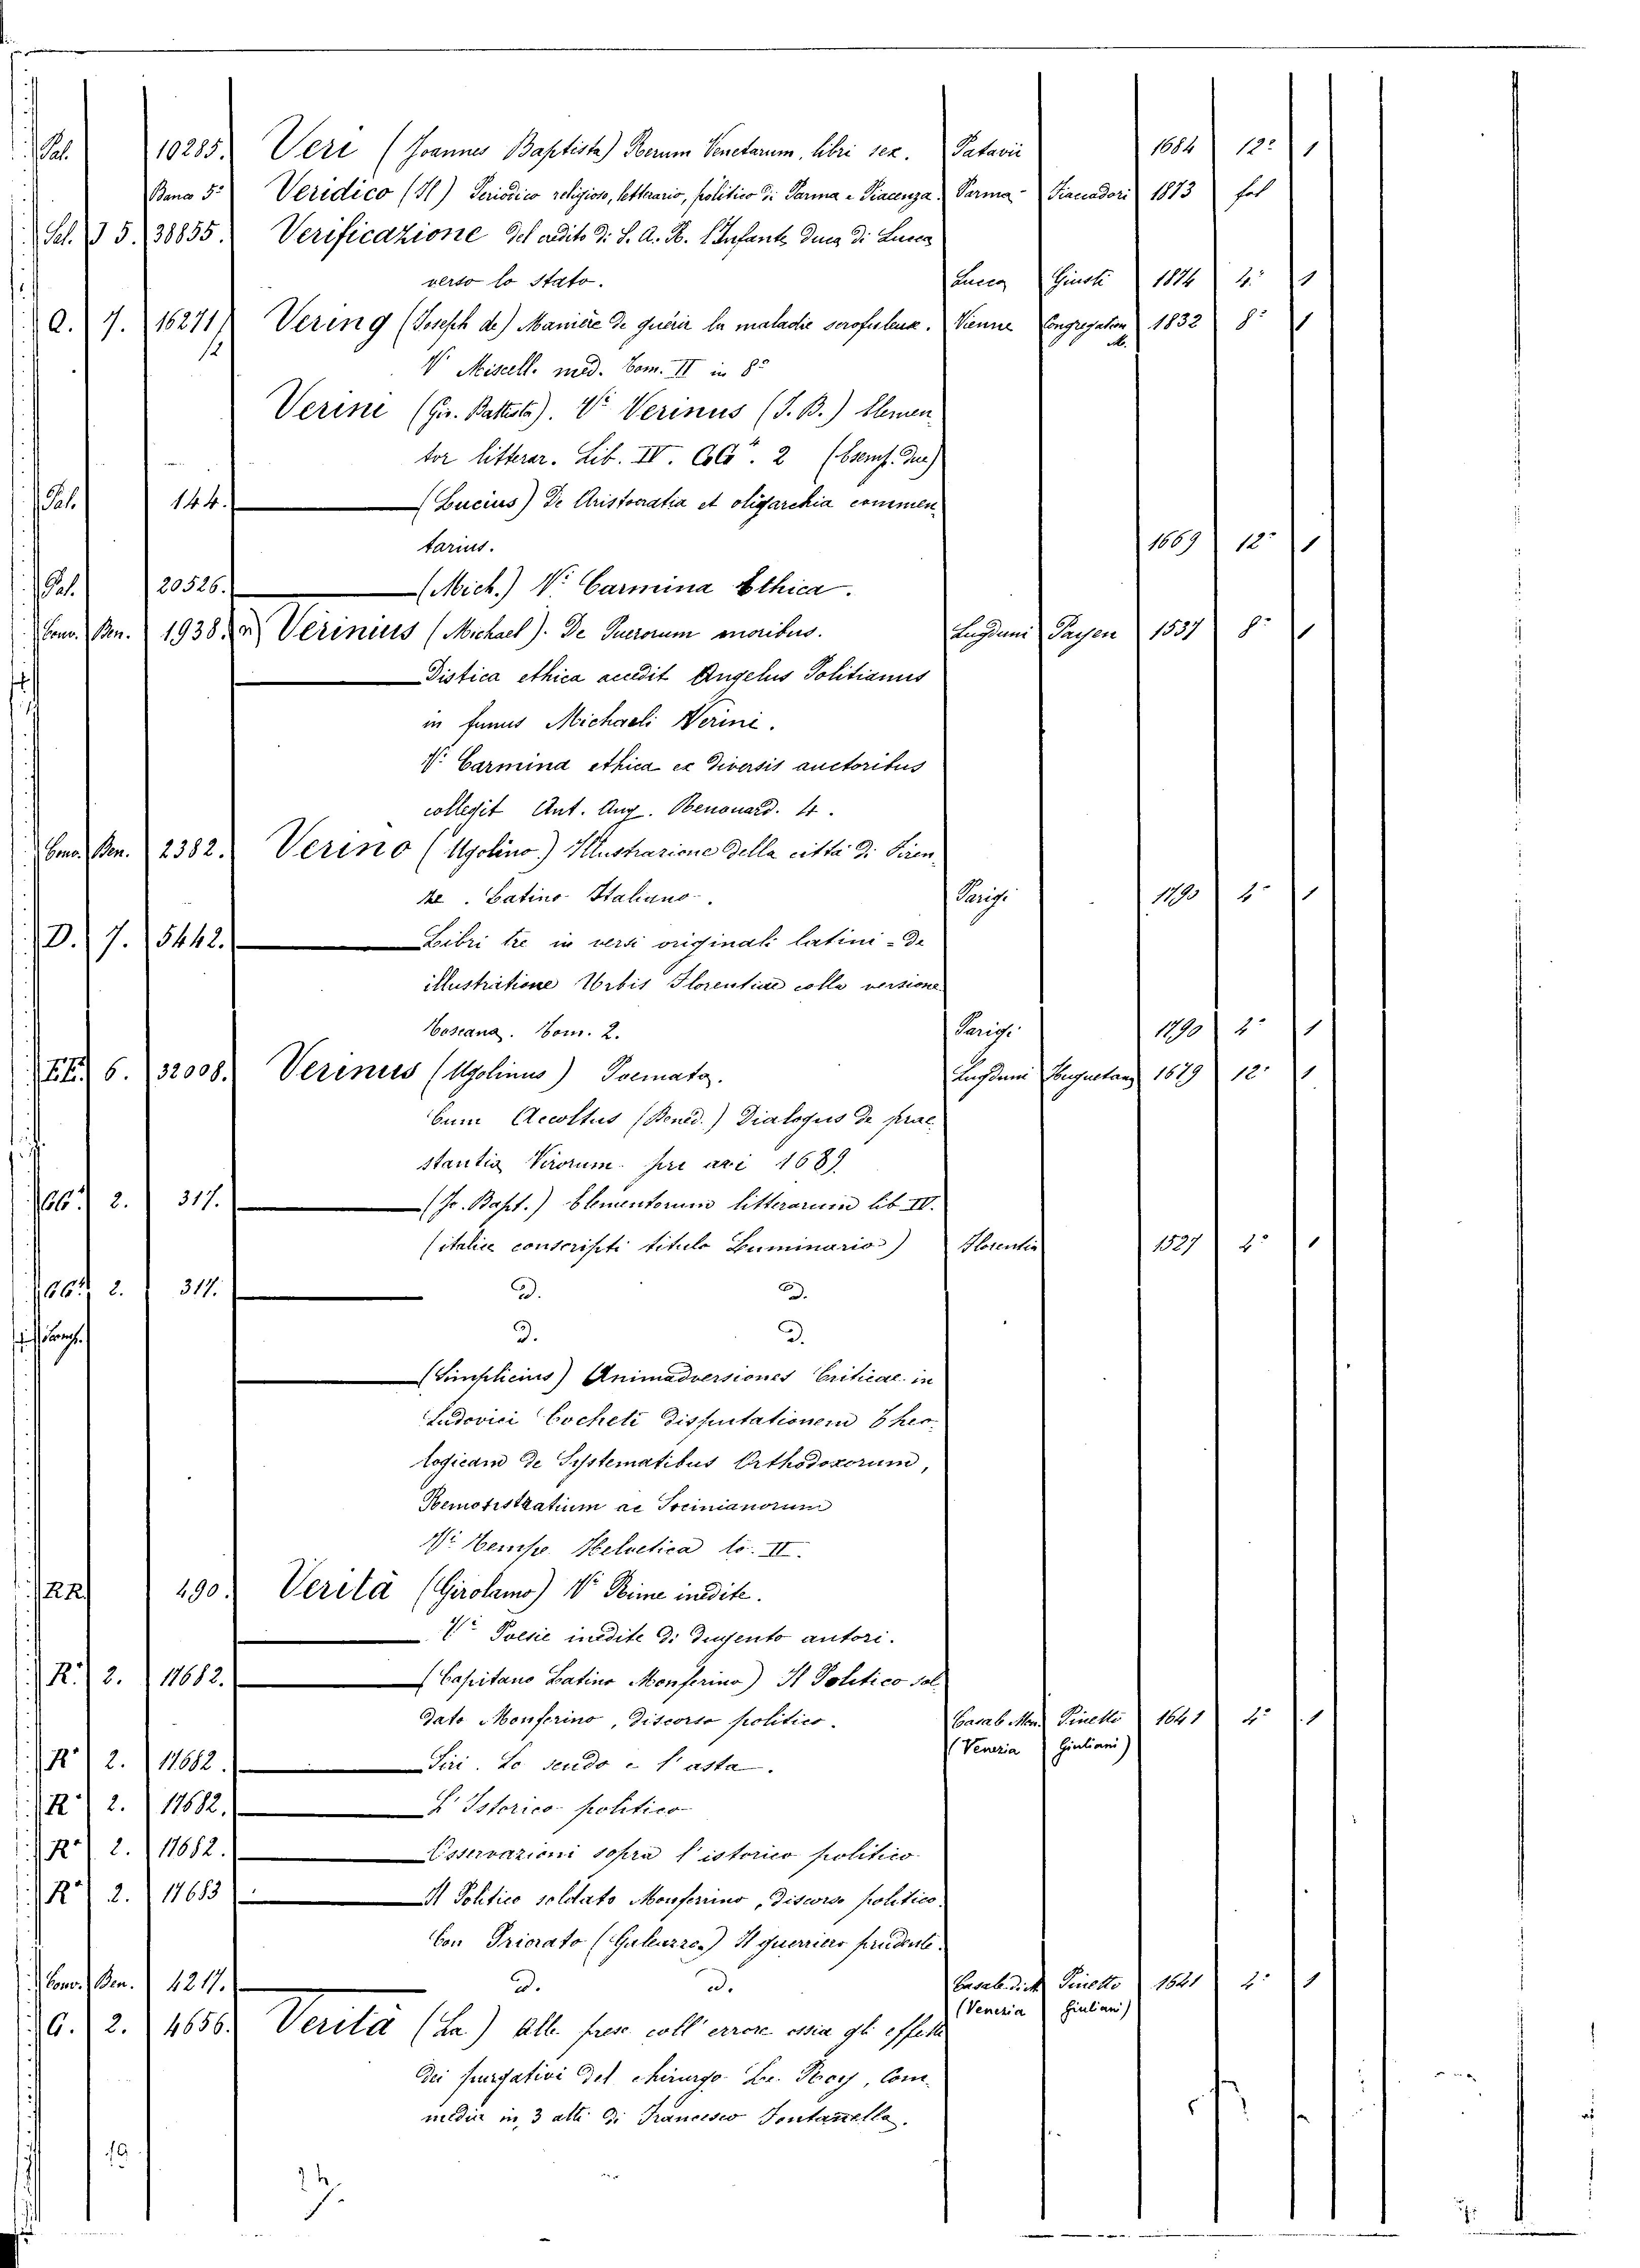 Pal. 10285. Veri (Joannes Baptista) Rerum Venetarum, libri sex. Patavii 1684 12° 1
Banco 5° Veridico (Il) Periodico religioso, letterario, politico di Parma e Piacenza. Parma- Fiaccadori 1873 fol
Pal. § 5. 38855. Verificazione del credito di S. A. R. l'Infante duca di Lucca
verso lo Stato. Lucca Giusti 4° 1
Q. 7. 16271/12 Vering (Joseph de) Manière de guérir la maladie scrofuleux. Vienne Congregation M. 1832 8° 1
V° Miscell. med. Tom. II in 8°
Verini (Gio. Battista). V° Verinus (J. B.) Elemen
tor litterar. Lib. IV. 2 (Esemp. due)
Pal. 144. (Lucius) De Aristocratia et oligarchia commen
tarius. 1669 12° 1
Pal. 20526. (Mich.) V° Carmina Ethica.
Conv. Ben. 1938. Verinius (Michael). De Puerorum moribus. Lugduni Payen 1537 8° 1
Distica ethica accedit Angelus Politianus
in funus Michaeli Verini.
V° Carmina ethica ex diversis auctoribus
collegit Ant. Aug. Renouard. 4.
Conv. Ben. 2382. Verino (Ugolino) Illustrazione della città di Firen
ze. Latino Italiano. Parigi 1790 4° 1
D. 7. 5442. Libri tre in versi originali latini - De
illustratione Urbis Florentiae colla versione
Toscana. Tom. 2. Parigi 1790 4° 1
6. 32008. Verinus (Ugolinus) Poemata. Lugduni Huguetanz 1679 12° 1
Cum Accoltus (Bened.) Dialogus de prae
stantia Virorum. 1689
2. 317. (Jo. Bapt.) Elementorum litterarum lib. IV.
(italice conscripti titulo Luminario) Florentia 1527 4° 1
2. 317. D. D.
D. D.
(Simplicius) Animadversiones Criticae in
Ludovici Cocheti disputationem Theo
logicam de Systematibus Orthodoxorum,
Remonstratium ac Socinianorum
V° Tempe Helvetica to. II.
RR 490. Verità (Girolamo) V° Rime inedite.
V° Poesie inedite di dugento autori.
R.° 2. 17682. (Capitano Latino Monferino) Il Politico sol
dato Monferino, discorso politico. Casab. Mon. Pinetti 1641 4° 1
(Venezia Giuliani)
R° 2. 17682. Siri. Lo scudo e l'asta.
R° 2. 17682. L'Istorico politico
R° 2. 17682. Osservazioni sopra l'istorico politico
R° 2. 17683 Il Politico soldato Monferino, discorso politico.
Con Priorato (Galeazzo) Il guerriero prudente.
Conv. Ben. 4217. D. D. Casale Pinetto 1641 4° 1
(Venezia Giuliani)
G. 2. 4656. Verità (La) alle prese coll'errore ossia gli effetti
dei purgativi del chirurgo Le Roy, Com
media in 3 atti di Francesco Fontanella.
19